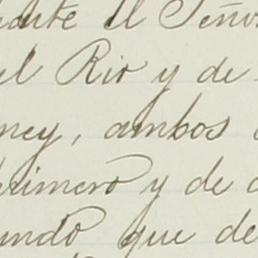 ante el Seño
el Rio y de
ney, ambos
primero y de
undo que de